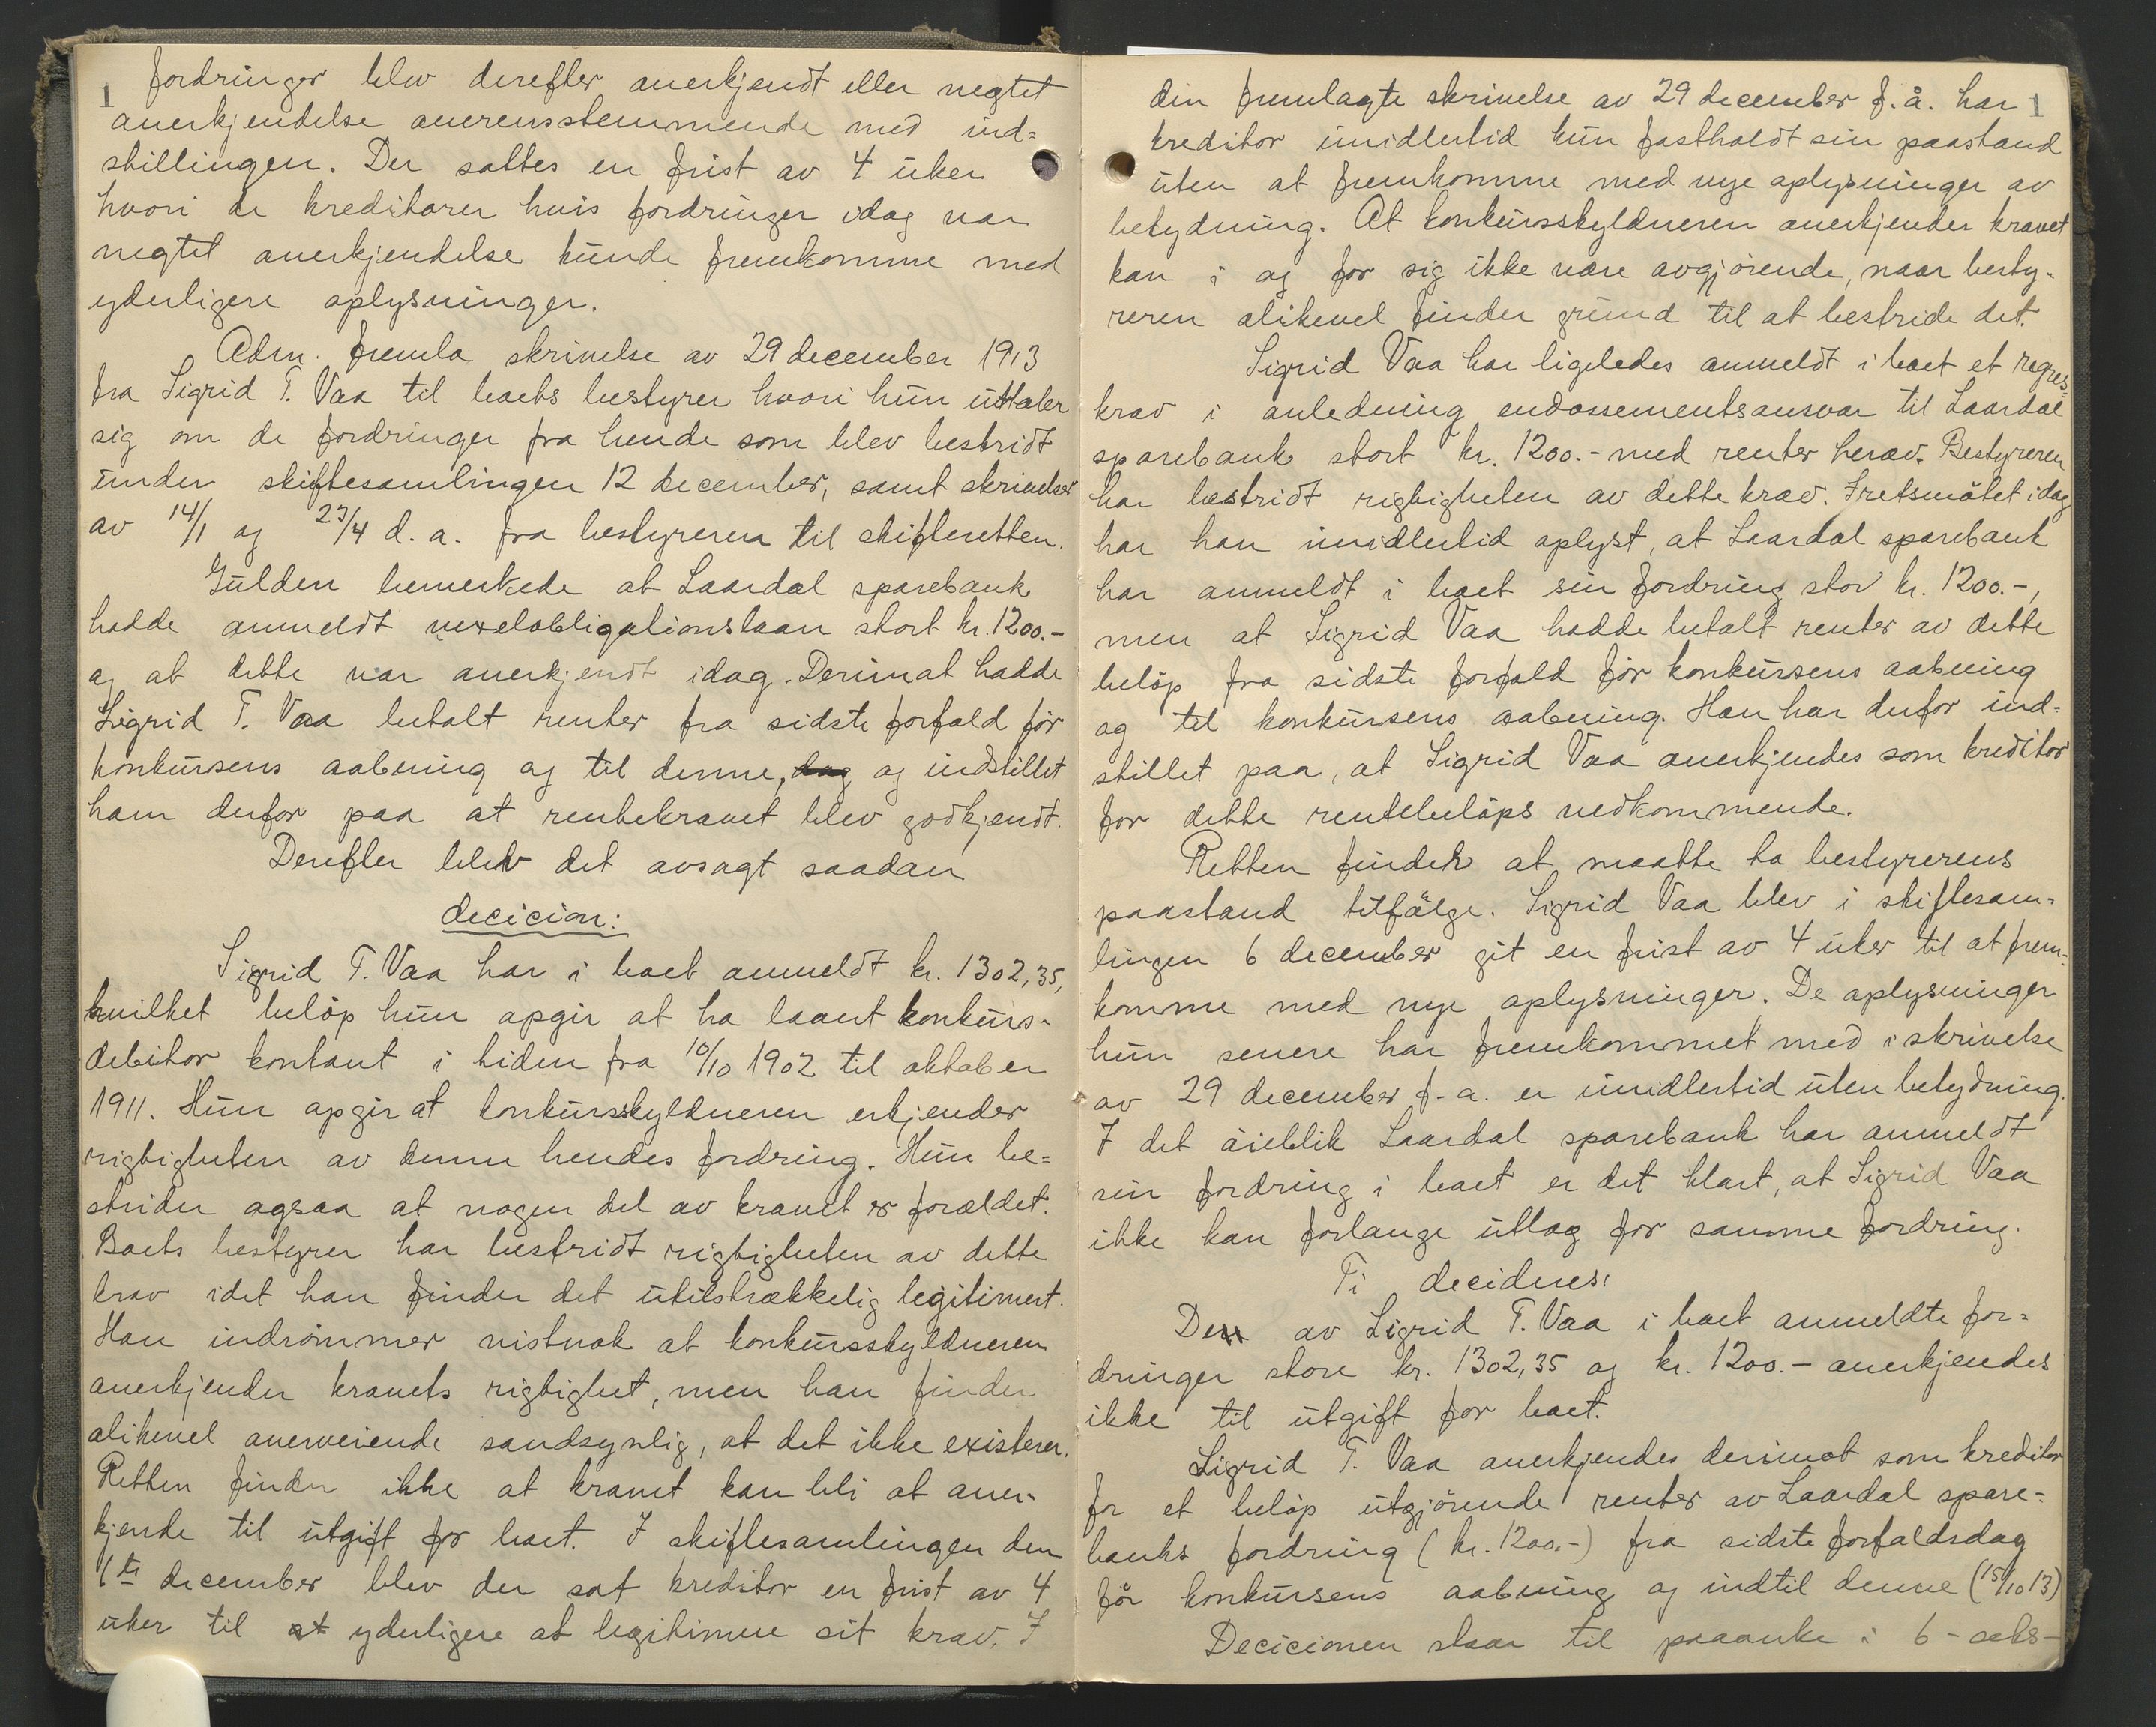 1
fordringer blev derefter anerkjendt eller negtet
anerkjendelse overensstemmende med ind=
stillingen. Der sattes en frist av 4 uker
hvori de kreditorer hvis fordringer idag var
negtet anerkjendelse kunde fremkomme med
yderligere oplysninger.
Adm. fremla skrivelse av 29 december 1913
fra Sigrid T. Vaa til boets bestyrer hvori hun uttaler
sig om de fordringer fra hende som blev bestridt
under skiftesamlingen 12 december, samt skrivelser
av 14/1 og 23/4 d. a. fra bestyreren til skifteretten.
Gulden bemerkede at Laardal sparebank
hadde anmeldt vexelobligationslaan stort kr. 1200.-
og at dette var anerkjendt idag. Derimot hadde
Sigrid T. Vaa betalt renter fra sidste forfald før
konkursens aabning og til denne, dag og indstillet
ham derfor paa at rentekravet blev godkjendt.
Derefter blev det avsagt saadan
decicion:
Sigrid T. Vaa har i boet anmeldt kr. 1302,35,
hvilket beløp hun opgir at ha laant konkurs-
debitor kontant i tiden fra 10/10 1902 til oktober
1911. Hun opgir at konkursskyldneren erkjender
rigtigheten av denne hendes fordring. Hun be=
strider ogsaa at nogen del av kravet er forældet.
Boets bestyrer har bestridt rigtigheten av dette
krav idet han finder det utilstrækkelig legitimert.
Han indrømmer vistnok at konkursskyldneren
anerkjender kravets rigtighet, men han finder
alikevel overveiende sandsynlig, at det ikke existerer.
Retten finder ikke at kravet kan bli at aner-
kjende til utgift for boet. I skiftesamlingen den
6te december blev der sat kreditor en frist av 4
uker til at yderligere at legitimere sit krav. I
1
den fremlagte skrivelse av 29 december f. å. har
kreditor imidlertid kun fastholdt sin paastand
uten at fremkomme med nye oplysninger av
betydning. At konkursskyldneren anerkjender kravet
kan i og for sig ikke være avgjørende, naar besty-
reren alikevel finder grund til at bestride det.
Sigrid Vaa har ligeledes anmeldt i boet et regres=
krav i anledning endossementsansvar til Laardal
sparebank stort kr. 1200.- med renter herav. Bestyreren
har bestridt rigtigheten av dette krav. I retsmøtet idag
har han imidlertid oplyst, at Laardal sparebank
har anmeldt i boet sin fordring stor kr. 1200.-,
men at Sigrid Vaa hadde betalt renter av dette
beløp fra sidste forfald før konkursens aabning
og til konkursens aabning. Han har derfor ind-
stillet paa, at Sigrid Vaa anerkjendes som kreditor
for dette rentebeløps vedkommende.
Retten finder at maatte ta bestyrerens
paastand tilfølge. Sigrid Vaa blev i skiftesam-
lingen 6 december git en frist av 4 uker til at frem-
komme med nye oplysninger. De oplysninger
hun senere har fremkommet med i skrivelse
av 29 december f. a. er imidlertid uten betydning.
I det øieblik Laardal sparebank har anmeldt
sin fordring i boet er det klart, at Sigrid Vaa
ikke kan forlange utlæg for samme fordring.
Ti decideres:
De av Sigrid T. Vaa i boet anmeldte for=
dringer store kr. 1302,35 og kr. 1200.- anerkjendes
ikke til utgift for boet.
Sigrid T. Vaa anerkjendes derimot som kreditor
for et beløp utgjørende renter av Laardal spare=
banks fordring (kr. 1200.-) fra sidste forfaldsdag
før konkursens aabning og indtil denne (15/10 13)
Decicionen staar til paaanke i 6 - seks-